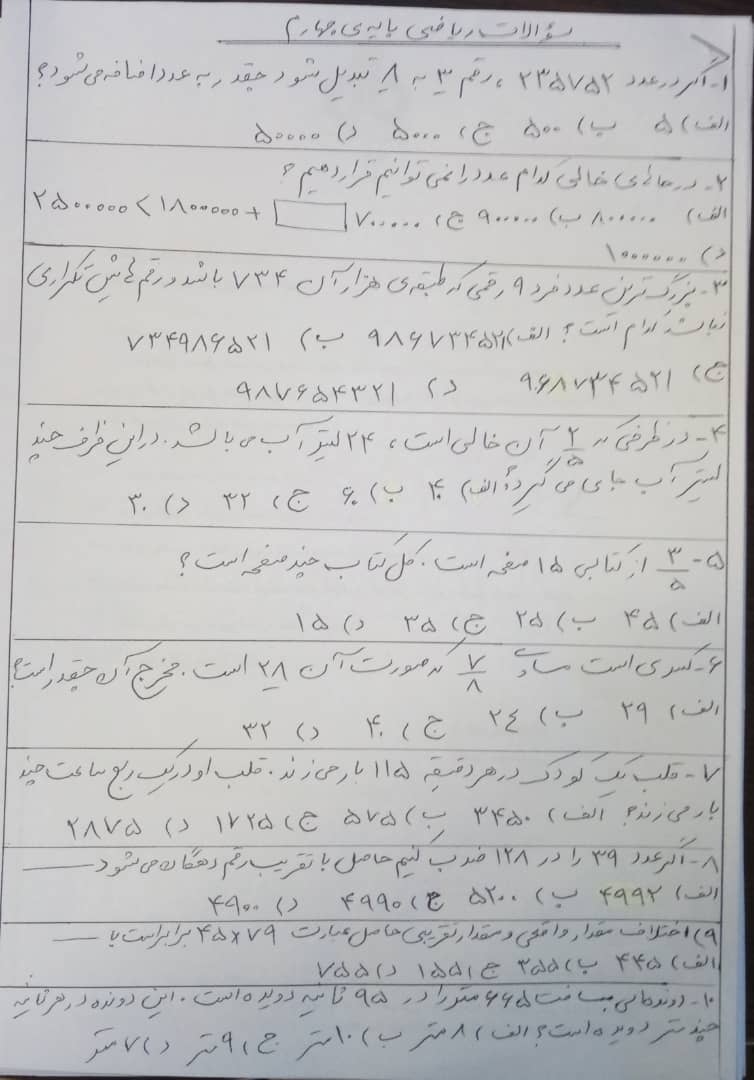 سؤالات ریاضی پایه ی چهارم
۱- اگر در عدد ۲۳۵۷۵۲ ، رقم ۳ به ۸ تبدیل شود چقدر به عدد اضافه می شود؟
الف) ۵ ب) ۵۰۰ ج) ۵۰۰۰ د) ۵۰۰۰۰
۲- در جای خالی کدام عدد را نمی توانیم قرار دهیم؟
الف) ۸۰۰۰۰۰ ب) ۹۰۰۰۰۰ ج) ۷۰۰۰۰۰ ۲۵۰۰۰۰۰ < ۱۸۰۰۰۰۰ +
د) ۱۰۰۰۰۰۰
۳- بزرگ ترین عدد فرد ۹ رقمی که طبقه ی هزار آن ۷۳۴ باشد و رقم هایش تکراری
نباشد کدام است؟ الف) ۹۸۶۷۳۴۵۲۱ ب) ۷۳۴۹۸۶۵۲۱
ج) ۹۶۸۷۳۴۵۲۱ د) ۹۸۷۶۵۴۳۲۱
۴- در ظرفی که ۲/۵ آن خالی است ، ۲۴ لیتر آب می باشد. در این ظرف چند
لیتر آب جای می گیرد؟ الف) ۴۰ ب) ۶۰ ج) ۳۲ د) ۳۰
۵- ۳/۵ از کتابی ۱۵ صفحه است. کل کتاب چند صفحه است؟
الف) ۴۵ ب) ۲۵ ج) ۳۵ د) ۱۵
۶- کسری است مساوی ۷/۸ که صورت آن ۲۸ است. مخرج آن چقدر است؟
الف) ۲۹ ب) ۲۴ ج) ۴۰ د) ۳۲
۷- قلب یک کودک در هر دقیقه ۱۱۵ بار می زند. قلب او در یک ربع ساعت چند
بار می زند؟ الف) ۳۴۵۰ ب) ۵۷۵ ج) ۱۷۲۵ د) ۲۸۷۵
۸- اگر عدد ۳۹ را در ۱۲۸ ضرب کنیم حاصل با تقریب رقم دهگان می شود
الف) ۴۹۹۲ ب) ۵۲۰۰ ج) ۴۹۹۰ د) ۴۹۰۰
۹) اختلاف مقدار واقعی و مقدار تقریبی حاصل عبارت ۴۵×۷۹ برابر است با
الف) ۴۴۵ ب) ۳۵۵ ج) ۱۵۵ د) ۷۵۵
۱۰- دونده ای مسافت ۶۶۵ متر را در ۹۵ ثانیه دویده است. این دونده در هر ثانیه
چند متر دویده است؟ الف) ۸ متر ب) ۱۰ متر ج) ۹ متر د) ۷ متر